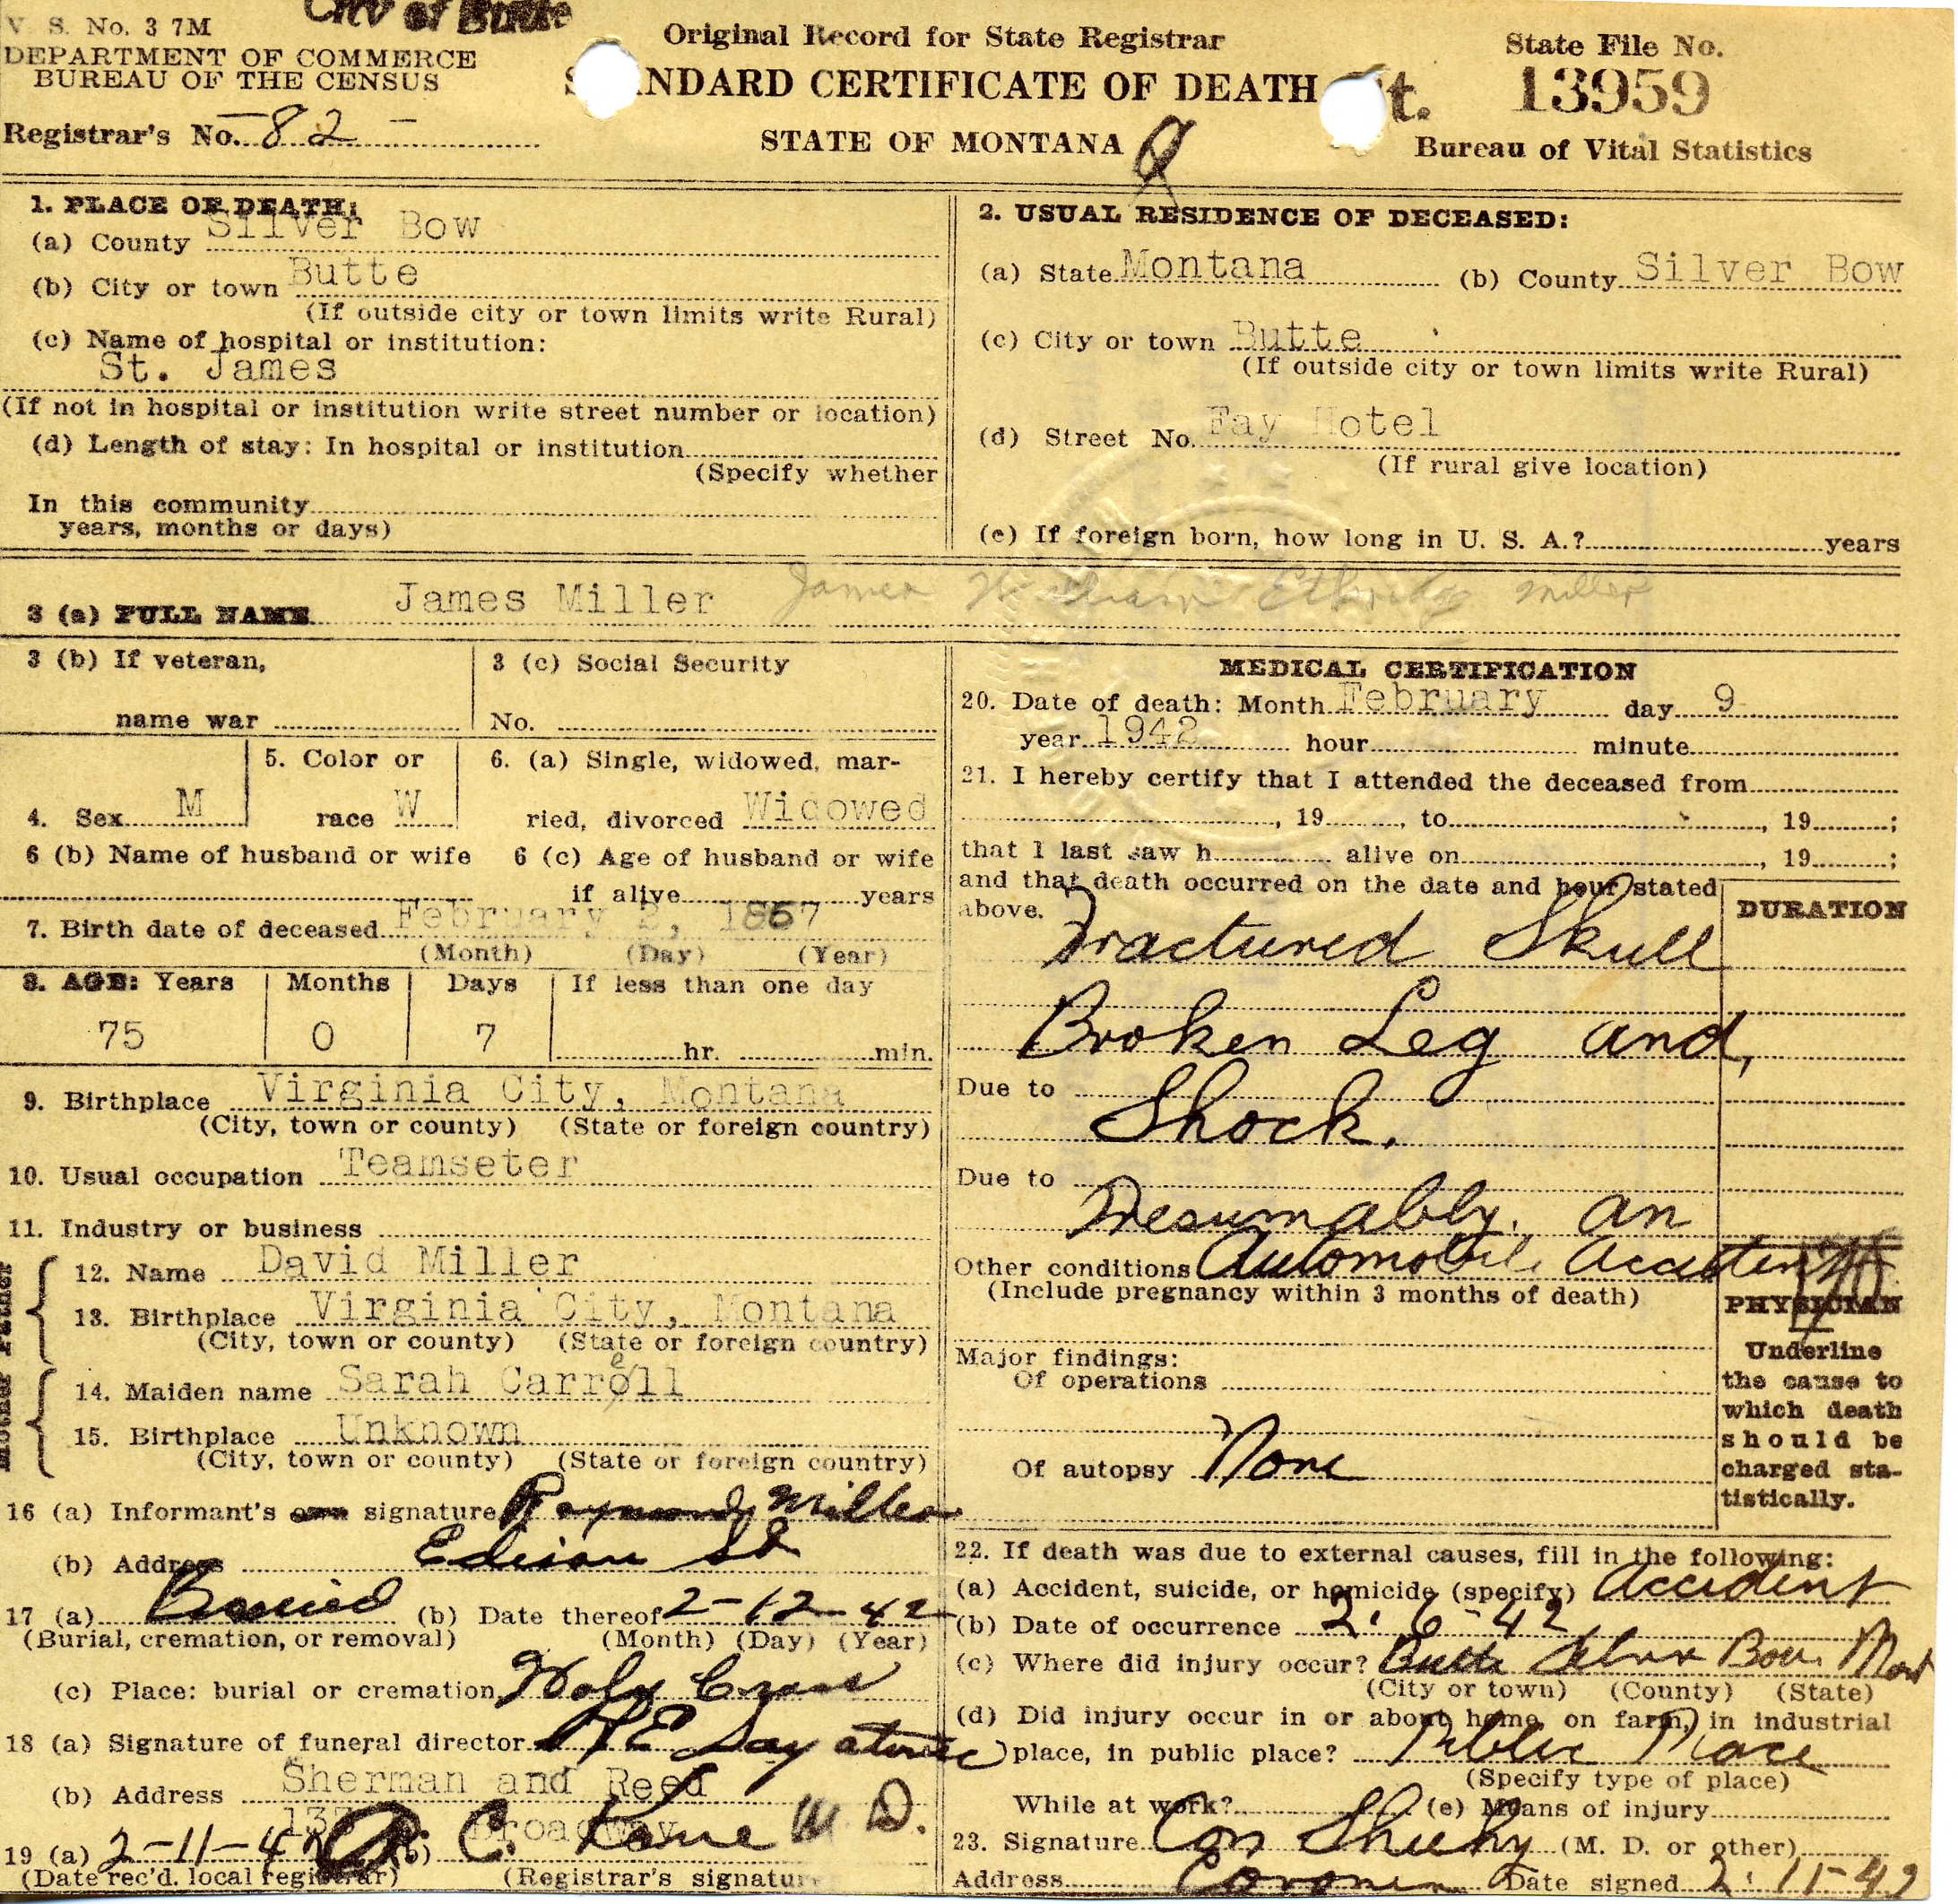 V. S. No. 3 7M
City of Butte
DEPARTMENT OF COMMERCE
BUREAU OF THE CENSUS
Registrar's No. -82-
Original Record for State Registrar
NDARD CERTIFICATE OF DEATH
STATE OF MONTANA
t.
State File No.
13959
Bureau of Vital Statistics
1. PLACE OF DEATH:
(a) County Silver Bow
(b) City or town Butte
(If outside city or town limits write Rural)
(c) Name of hospital or institution:
St. James
(If not in hospital or institution write street number or location)
(d) Length of stay: In hospital or institution
(Specify whether
In this community
years, months or days)
2. USUAL RESIDENCE OF DECEASED:
(a) State Montana (b) County Silver Bow
(c) City or town Butte
(If outside city or town limits write Rural)
(d) Street No. Fay Hotel
(If rural give location)
(e) If foreign born, how long in U. S. A.? years
3 (a) FULL NAME James Miller James William Miller
3 (b) If veteran,
name war
3 (c) Social Security
No.
4. Sex M
5. Color or
race W
6. (a) Single, widowed, mar-
ried, divorced Widowed
6 (b) Name of husband or wife
6 (c) Age of husband or wife
if alive years
7. Birth date of deceased February 2, 1867
(Month) (Day) (Year)
8. AGE: Years Months Days If less than one day
75 0 7 hr. min.
9. Birthplace Virginia City, Montana
(City, town or county) (State or foreign country)
10. Usual occupation Teamseter
11. Industry or business
Father
12. Name David Miller
13. Birthplace Virginia City, Montana
(City, town or county) (State or foreign country)
Mother
14. Maiden name Sarah Carroll
e
15. Birthplace Unknown
(City, town or county) (State or foreign country)
16 (a) Informant's own signature Raymond Miller
(b) Address Edison St
17 (a) Buried (b) Date thereof 2-12-42
(Burial, cremation, or removal) (Month) (Day) (Year)
(c) Place: burial or cremation Holy Cross
18 (a) Signature of funeral director
(b) Address Sherman and Reed
Broadway
19 (a) 2-11-42 (b) C. Kane M. D.
(Date rec'd. local registrar) (Registrar's signature
MEDICAL CERTIFICATION
20. Date of death: Month February day 9
year 1942 hour minute
21. I hereby certify that I attended the deceased from
, 19 , to , 19 ;
that I last saw h alive on , 19 ;
and that death occurred on the date and hour stated
above.
DURATION
Fractured Skull
Broken Leg and,
Due to
Shock.
Due to
Presumably. an
Other conditions Automobile Accident
(Include pregnancy within 3 months of death)
170
PHYSICIAN
Underline
the cause to
which death
should be
charged sta-
tistically.
Major findings:
Of operations
Of autopsy None
22. If death was due to external causes, fill in the following:
(a) Accident, suicide, or homicide (specify) Accident
(b) Date of occurrence 2-6-42
(c) Where did injury occur? Butte Silver Bow Mont
(City or town) (County) (State)
(d) Did injury occur in or about home, on farm, in industrial
place, in public place? Public Place
(Specify type of place)
While at work? (e) Means of injury
23. Signature Con Sheehy (M. D. or other)
Address Coroner Date signed 2-11-42